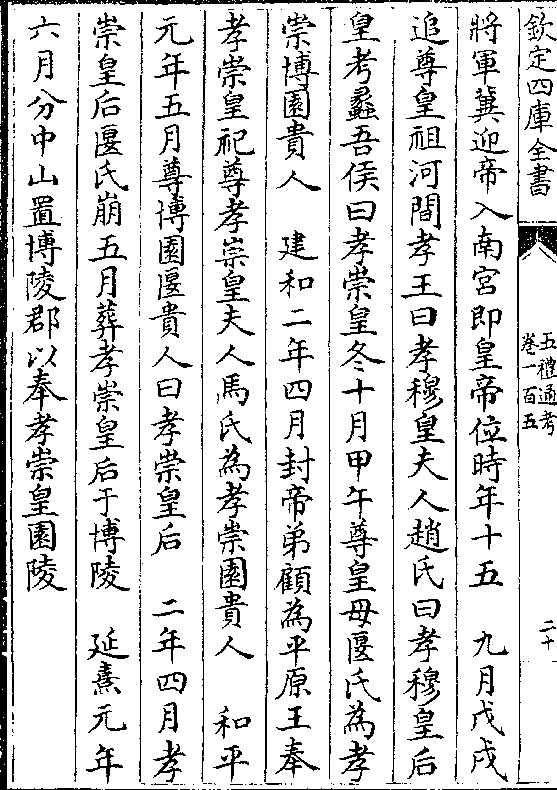 欽定四庫全書
五禮通考
卷一百五
二十
將軍冀迎帝入南宮即皇帝位時年十五　九月戊戌
追尊皇祖河間孝王曰孝穆皇夫人趙氏曰孝穆皇后
皇考蠡吾侯曰孝崇皇冬十月甲午尊皇母匽氏為孝
崇博園貴人　建和二年四月封帝弟顧為平原王奉
孝崇皇祀尊孝崇皇夫人馬氏為孝崇園貴人　和平
元年五月尊博園匽貴人曰孝崇皇后　二年四月孝
崇皇后匽氏崩五月葬孝崇皇后于博陵　延熹元年
六月分中山置博陵郡以奉孝崇皇園陵